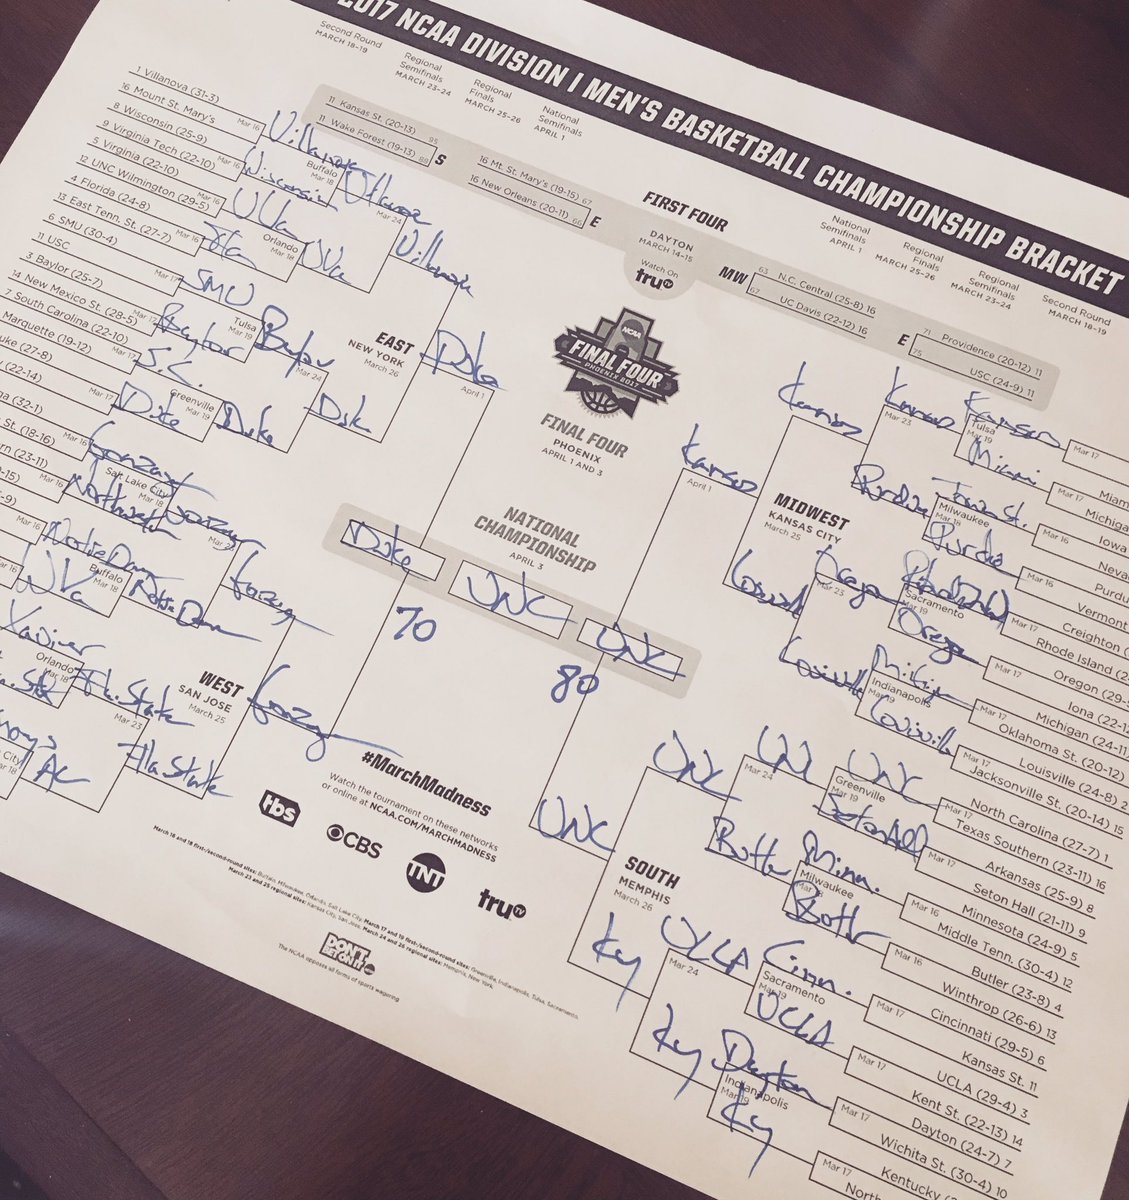 2017 NCAA DIVISION I MEN'S BASKETBALL CHAMPIONSHIP BRACKET
Second Round
MARCH 18-19
Regional
Semifinals
MARCH 23-24
Regional
Finals
MARCH 25-26
National
Semifinals
APRIL 1
National
Semifinals
APRIL 1
Regional
Finals
MARCH 25-26
Regional
Semifinals
MARCH 23-24
Second Round
MARCH 18-19
FIRST FOUR
DAYTON
MARCH 14-15
Watch On
truTV
11 Kansas St. (20-13) 85
11 Wake Forest (19-13) 88
S
16 Mt. St. Mary's (19-15) 67
16 New Orleans (20-11) 66
E
MW
63 N.C. Central (25-8) 16
67 UC Davis (22-12) 16
E
71 Providence (20-12) 11
75 USC (24-9) 11
1 Villanova (31-3)
16 Mount St. Mary's
8 Wisconsin (25-9)
9 Virginia Tech (22-10)
5 Virginia (22-10)
12 UNC Wilmington (29-5)
4 Florida (24-8)
13 East Tenn. St. (27-7)
6 SMU (30-4)
11 USC
3 Baylor (25-7)
14 New Mexico St. (28-5)
7 South Carolina (22-10)
Marquette (19-12)
uke (27-8)
(22-14)
ga (32-1)
St. (18-16)
ern (23-11)
Mar 16
Mar 16
Mar 16
Mar 16
Mar 17
Mar 17
Mar 17
Mar 17
Villanova
Wisconsin
UVa
Fla
SMU
Baylor
S.C.
Duke
Buffalo
Mar 18
Orlando
Mar 18
Tulsa
Mar 19
Greenville
Mar 19
Villanova
UVa
Baylor
Duke
Mar 24
Mar 24
Villanova
Duke
EAST
NEW YORK
March 26
Duke
April 1
Mar 16
Mar 16
Gonzaga
Northwestern
Notre Dame
WVa
Xavier
Fla. State
Salt Lake City
Mar 18
Buffalo
Mar 18
Orlando
Mar 18
City
Mar 18
Gonzaga
Notre Dame
Fla. State
Mar 23
Gonzaga
Fla State
WEST
SAN JOSE
March 25
Gonzaga
NCAA
FINAL FOUR
PHOENIX 2017
FINAL FOUR
PHOENIX
APRIL 1 AND 3
NATIONAL
CHAMPIONSHIP
APRIL 3
Duke
UNC
UNC
70
80
Kansas
Miami
Iowa St.
Purdue
Oregon
Michigan
Louisville
Mar 17
Mar 17
Mar 16
Mar 16
Mar 17
Mar 17
Mar 17
Mar 17
Tulsa
Mar 19
Milwaukee
Mar 18
Sacramento
Mar 19
Indianapolis
Mar 19
Kansas
Purdue
Oregon
Louisville
Mar 23
Mar 23
Kansas
Louisville
MIDWEST
KANSAS CITY
March 25
Kansas
April 1
Miam
Michigan
Iowa
Neva
Purdu
Vermont
Creighton
Rhode Island (2
Oregon (29-
Iona (22-12
Michigan (24-11
Oklahoma St. (20-12)
Louisville (24-8) 2
Jacksonville St. (20-14) 15
North Carolina (27-7) 1
Texas Southern (23-11) 16
Arkansas (25-9) 8
Seton Hall (21-11) 9
Minnesota (24-9) 5
Middle Tenn. (30-4) 12
Butler (23-8) 4
Winthrop (26-6) 13
Cincinnati (29-5) 6
Kansas St. 11
UCLA (29-4) 3
Kent St. (22-13) 14
Dayton (24-7) 7
Wichita St. (30-4) 10
Kentucky
North
Mar 17
Mar 17
Mar 16
Mar 16
Mar 17
Mar 17
Mar 17
Mar 17
UNC
Seton Hall
Minn.
Butler
Cinn.
UCLA
Dayton
Ky
Greenville
Mar 19
Milwaukee
Mar 18
Sacramento
Mar 19
Indianapolis
Mar 19
UNC
Butler
UCLA
Ky
Mar 24
Mar 24
UNC
Ky
SOUTH
MEMPHIS
March 26
UNC
#MarchMadness
Watch the tournament on these networks
or online at NCAA.COM/MARCHMADNESS
tbs
CBS
TNT
truTV
DON'T BET ON IT
The NCAA opposes all forms of sports wagering